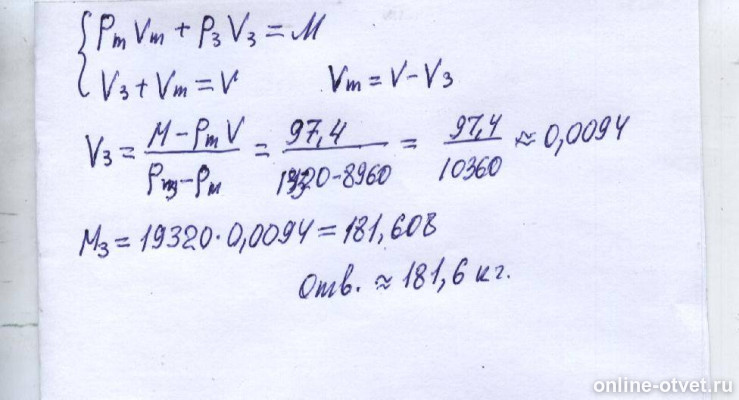 { ρm Vm + ρ3 V3 = M
V3 + Vm = V Vm = V - V3
V3 = M - ρm V / ρ3 - ρm = 97,4 / 19320 - 8960 = 97,4 / 10360 ≈ 0,0094
M3 = 19320 · 0,0094 = 181,608
Отв. ≈ 181,6 кг.
online-otvet.ru